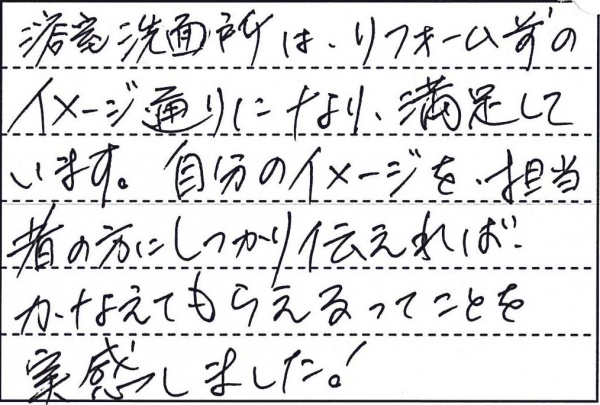 浴室洗面所は、リフォーム前の
イメージ通りになり、満足して
います。自分のイメージを、担当
者の方にしっかり伝えれば、
かなえてもらえるってことを
実感しました!